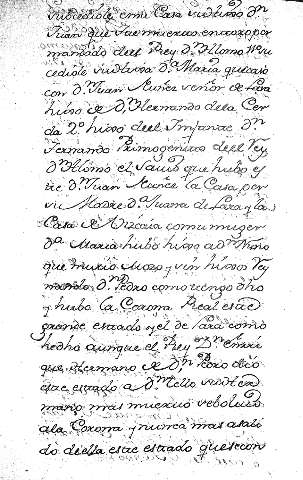 subcediole en su Casa su hermo Dn
Juan que fue muerto en por
mandado del Rey Dn Alonso 11º su
cediole su hermna Da Maria que caso
con Dn Juan Nuñez señor de Lara
hixo de Dn Hernando de la Cer
da Dn hixo del Imfante Dn
Fernando Primogenito del Rey
Dn Alonso el Savio que hubo es
te Dn Juan Nuñez la Casa por
su Madre Da Juana de Lara y la
Casa de Vizcaia con su muger
Da Maria hubo hixo a Dn Nuño
que murio Mozo y sin hixos Rey
nando Dn Pedro como tengo dho
y hubo la Corona Real este
grande estado y el de Lara como
hedho aunque el Rey Dn Enrri
que Hermano de Dn Pedro dio
este estado a Dn Tello su Her
mano mas muerto se bolvio
a la Corona y nunca mas a sali
do de ella este estado que son